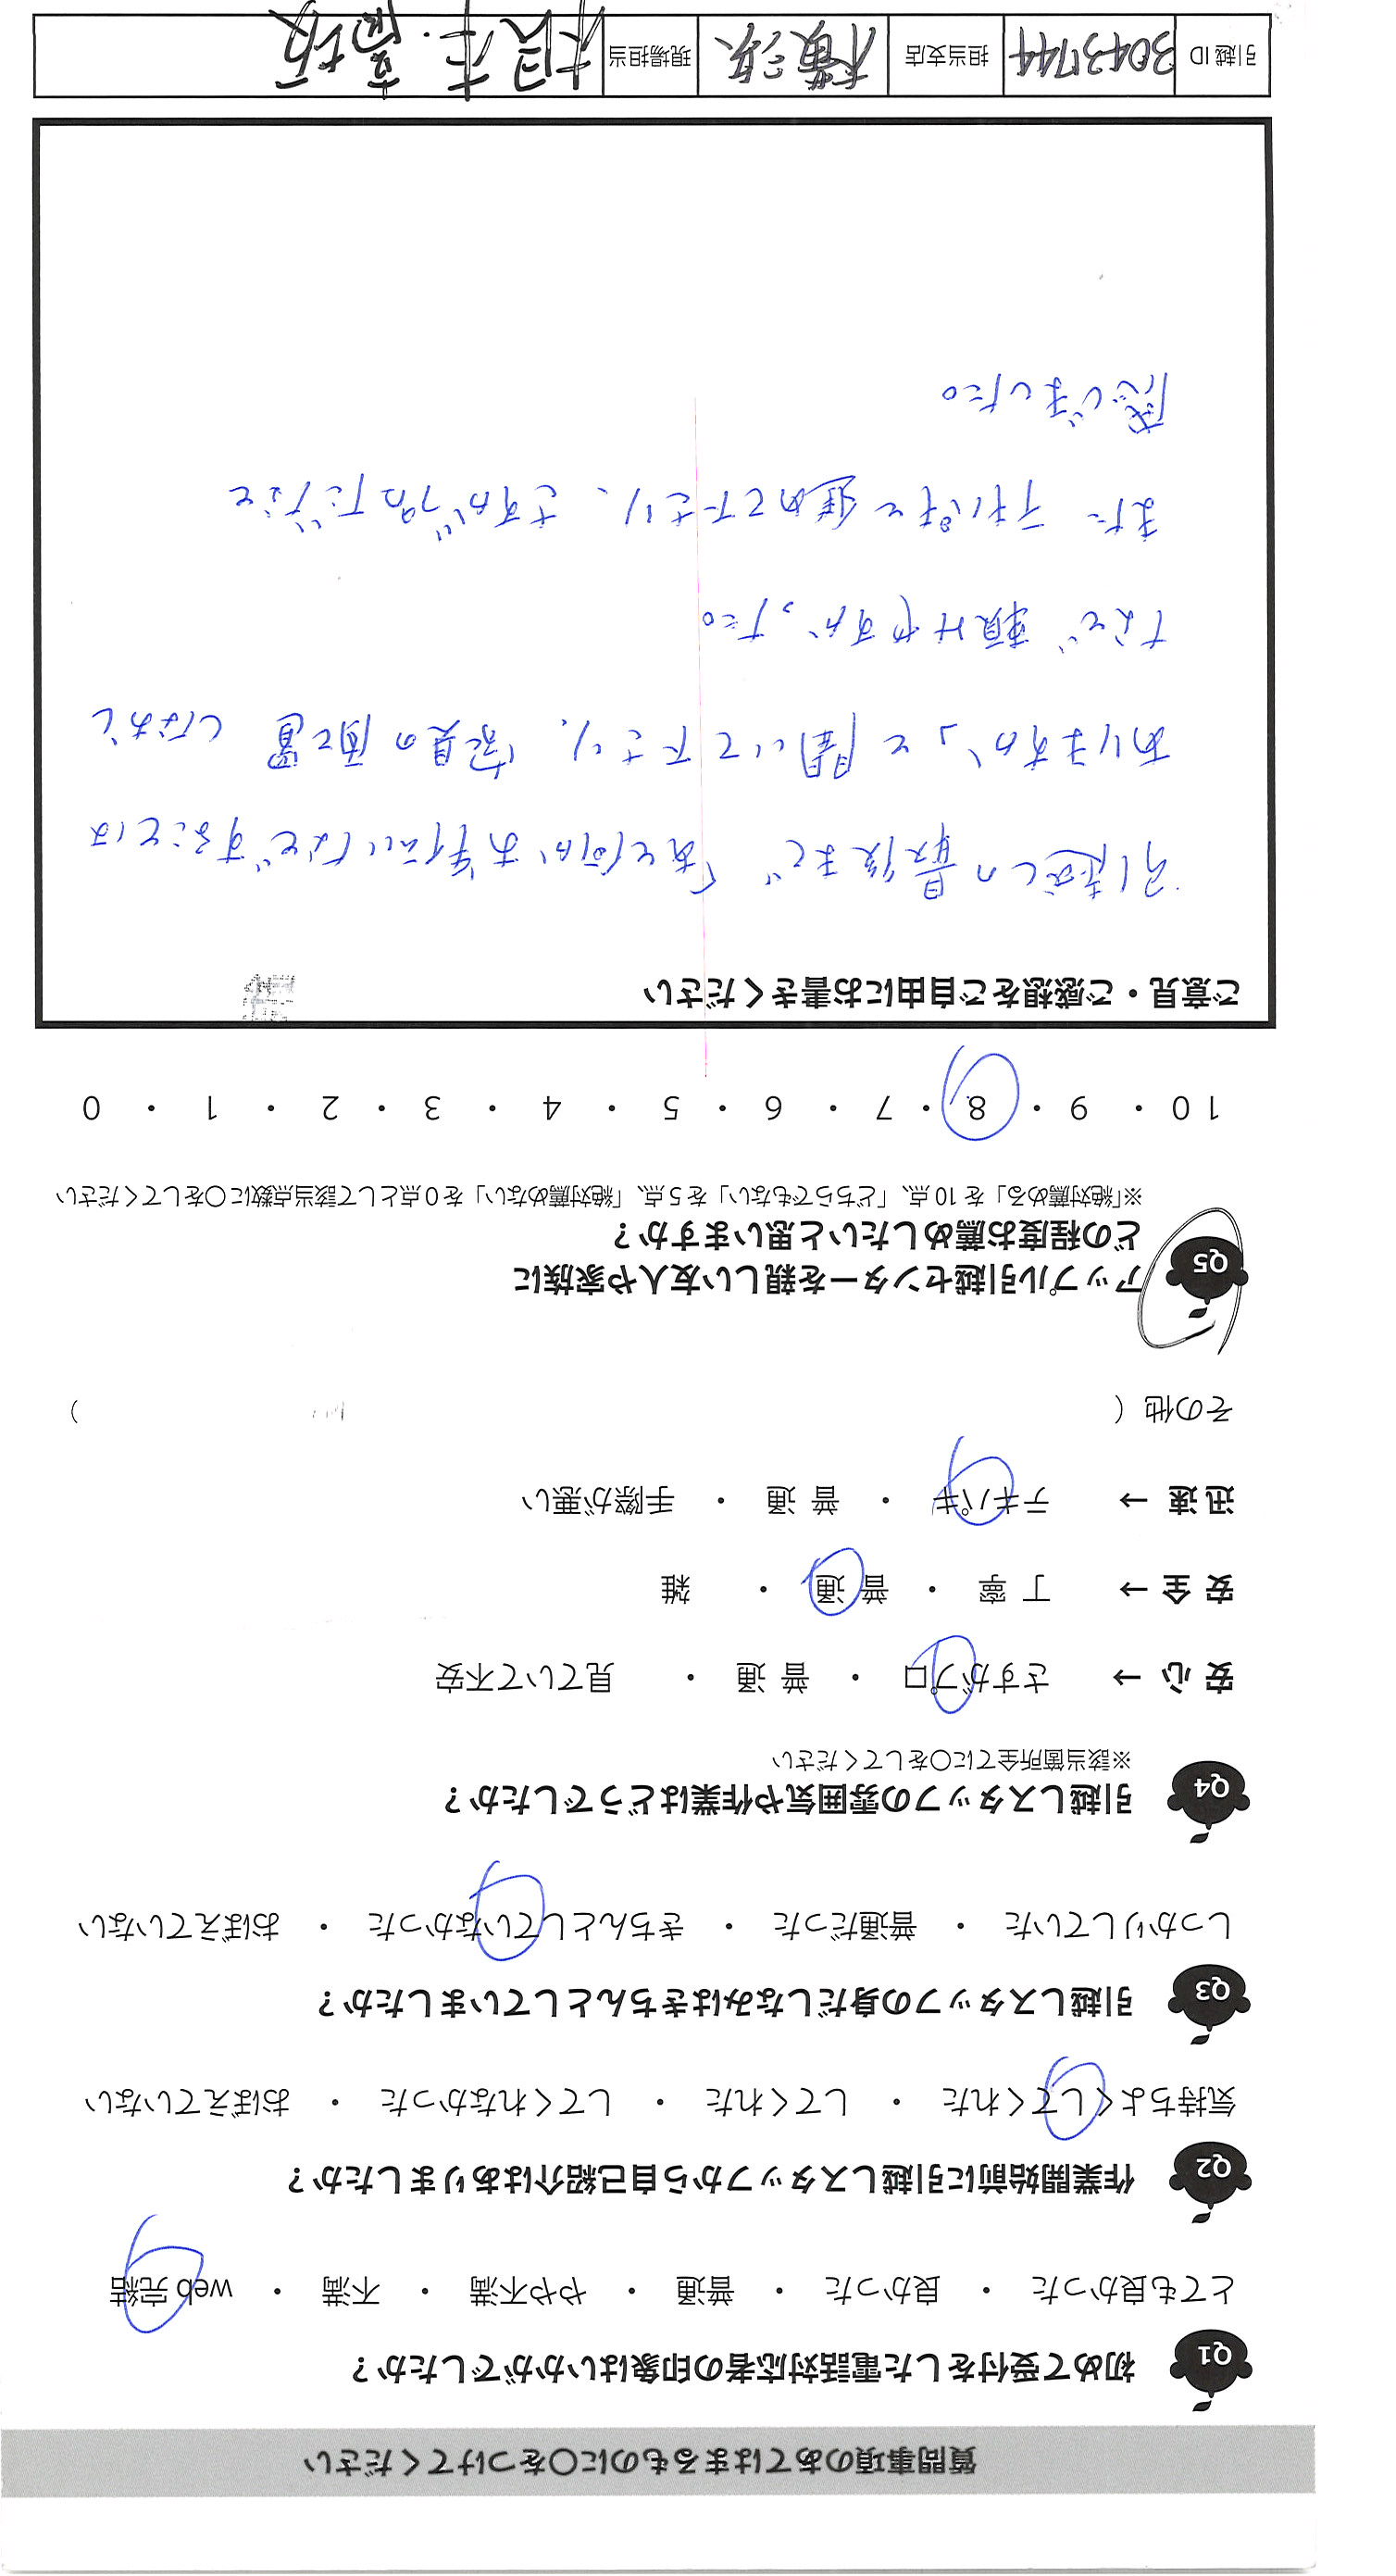 質問事項のあてはまるものに○をつけてください
Q1 初めて受付をした電話対応者の印象はいかがでしたか?
とても良かった ・ 良かった ・ 普通 ・ やや不満 ・ 不満 ・ web 完結
Q2 作業開始前に引越しスタッフから自己紹介はありましたか?
気持ちよくしてくれた ・ してくれた ・ してくれなかった ・ おぼえていない
Q3 引越しスタッフの身だしなみはきちんとしていましたか?
しっかりしていた ・ 普通だった ・ きちんとしていなかった ・ おぼえていない
Q4 引越しスタッフの雰囲気や作業はどうでしたか?
※該当箇所全てに○をしてください
安 心 → さすがプロ ・ 普 通 ・ 見ていて不安
安 全 → 丁 寧 ・ 普 通 ・ 雑
迅 速 → テキパキ ・ 普 通 ・ 手際が悪い
その他 ( )
Q5 アップル引越センターを親しい友人や家族に
どの程度お薦めしたいと思いますか?
※「絶対薦める」を 10 点、「どちらでもない」を 5 点、「絶対薦めない」を 0 点として該当点数に○をしてください
10 ・ 9 ・ 8 ・ 7 ・ 6 ・ 5 ・ 4 ・ 3 ・ 2 ・ 1 ・ 0
ご意見・ご感想をご自由にお書きください
引越しの最後まで「あと何かお手伝いなどすることは
ありますか」と聞いて下さり、家具の配置しなおし
など頼みやすかった。
また テキパキと進めて下さり、さすがプロだなと
感じました。
引越 ID 3043744 担当支店 横浜 現場担当